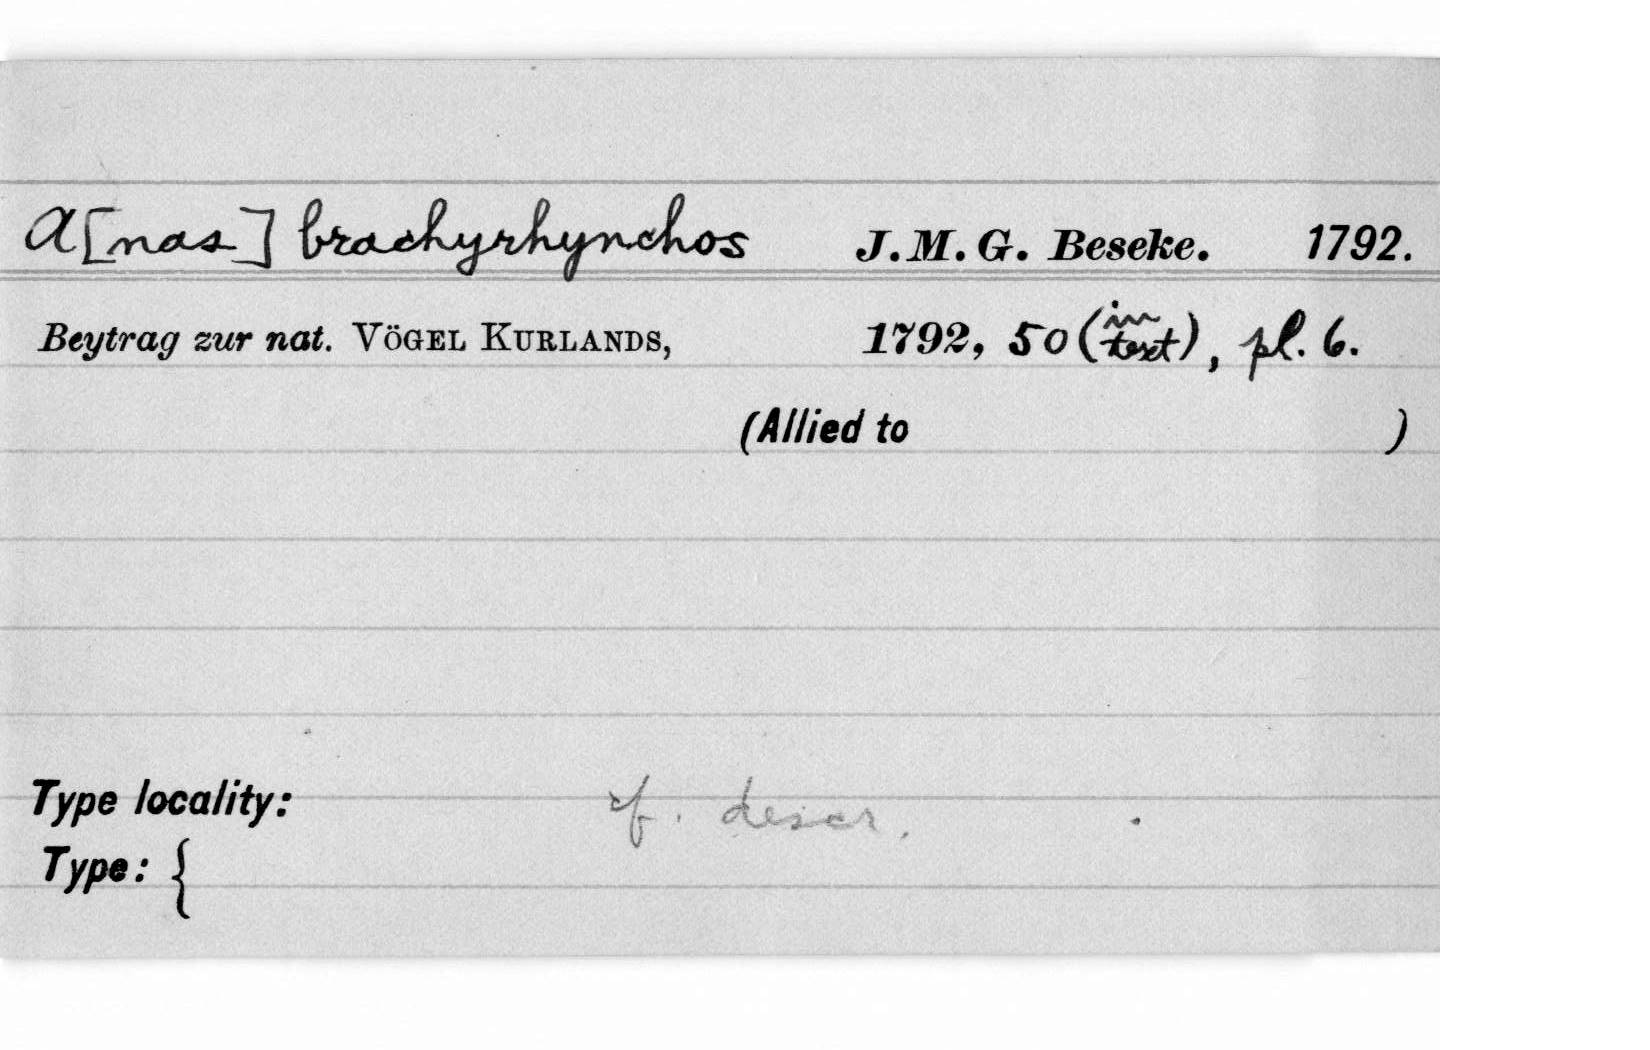 A[nas] brachyrhynchos J. M. G. Beseke. 1792.
Beytrag zur nat. VÖGEL KURLANDS, 1792, 50 (in text), pl. 6.
(Allied to )
Type locality: cf. descr.
Type: {